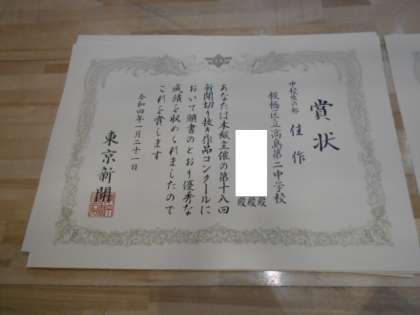 賞状
中学生の部 佳作
板橋区立高島第二中学校
殿殿殿
あなたは本紙主催の第十八回
新聞切り抜き作品コンクールに
おいて頭書のとおり優秀な
成績を収められましたので
これを賞します
令和四年一月二十一日
東京新聞